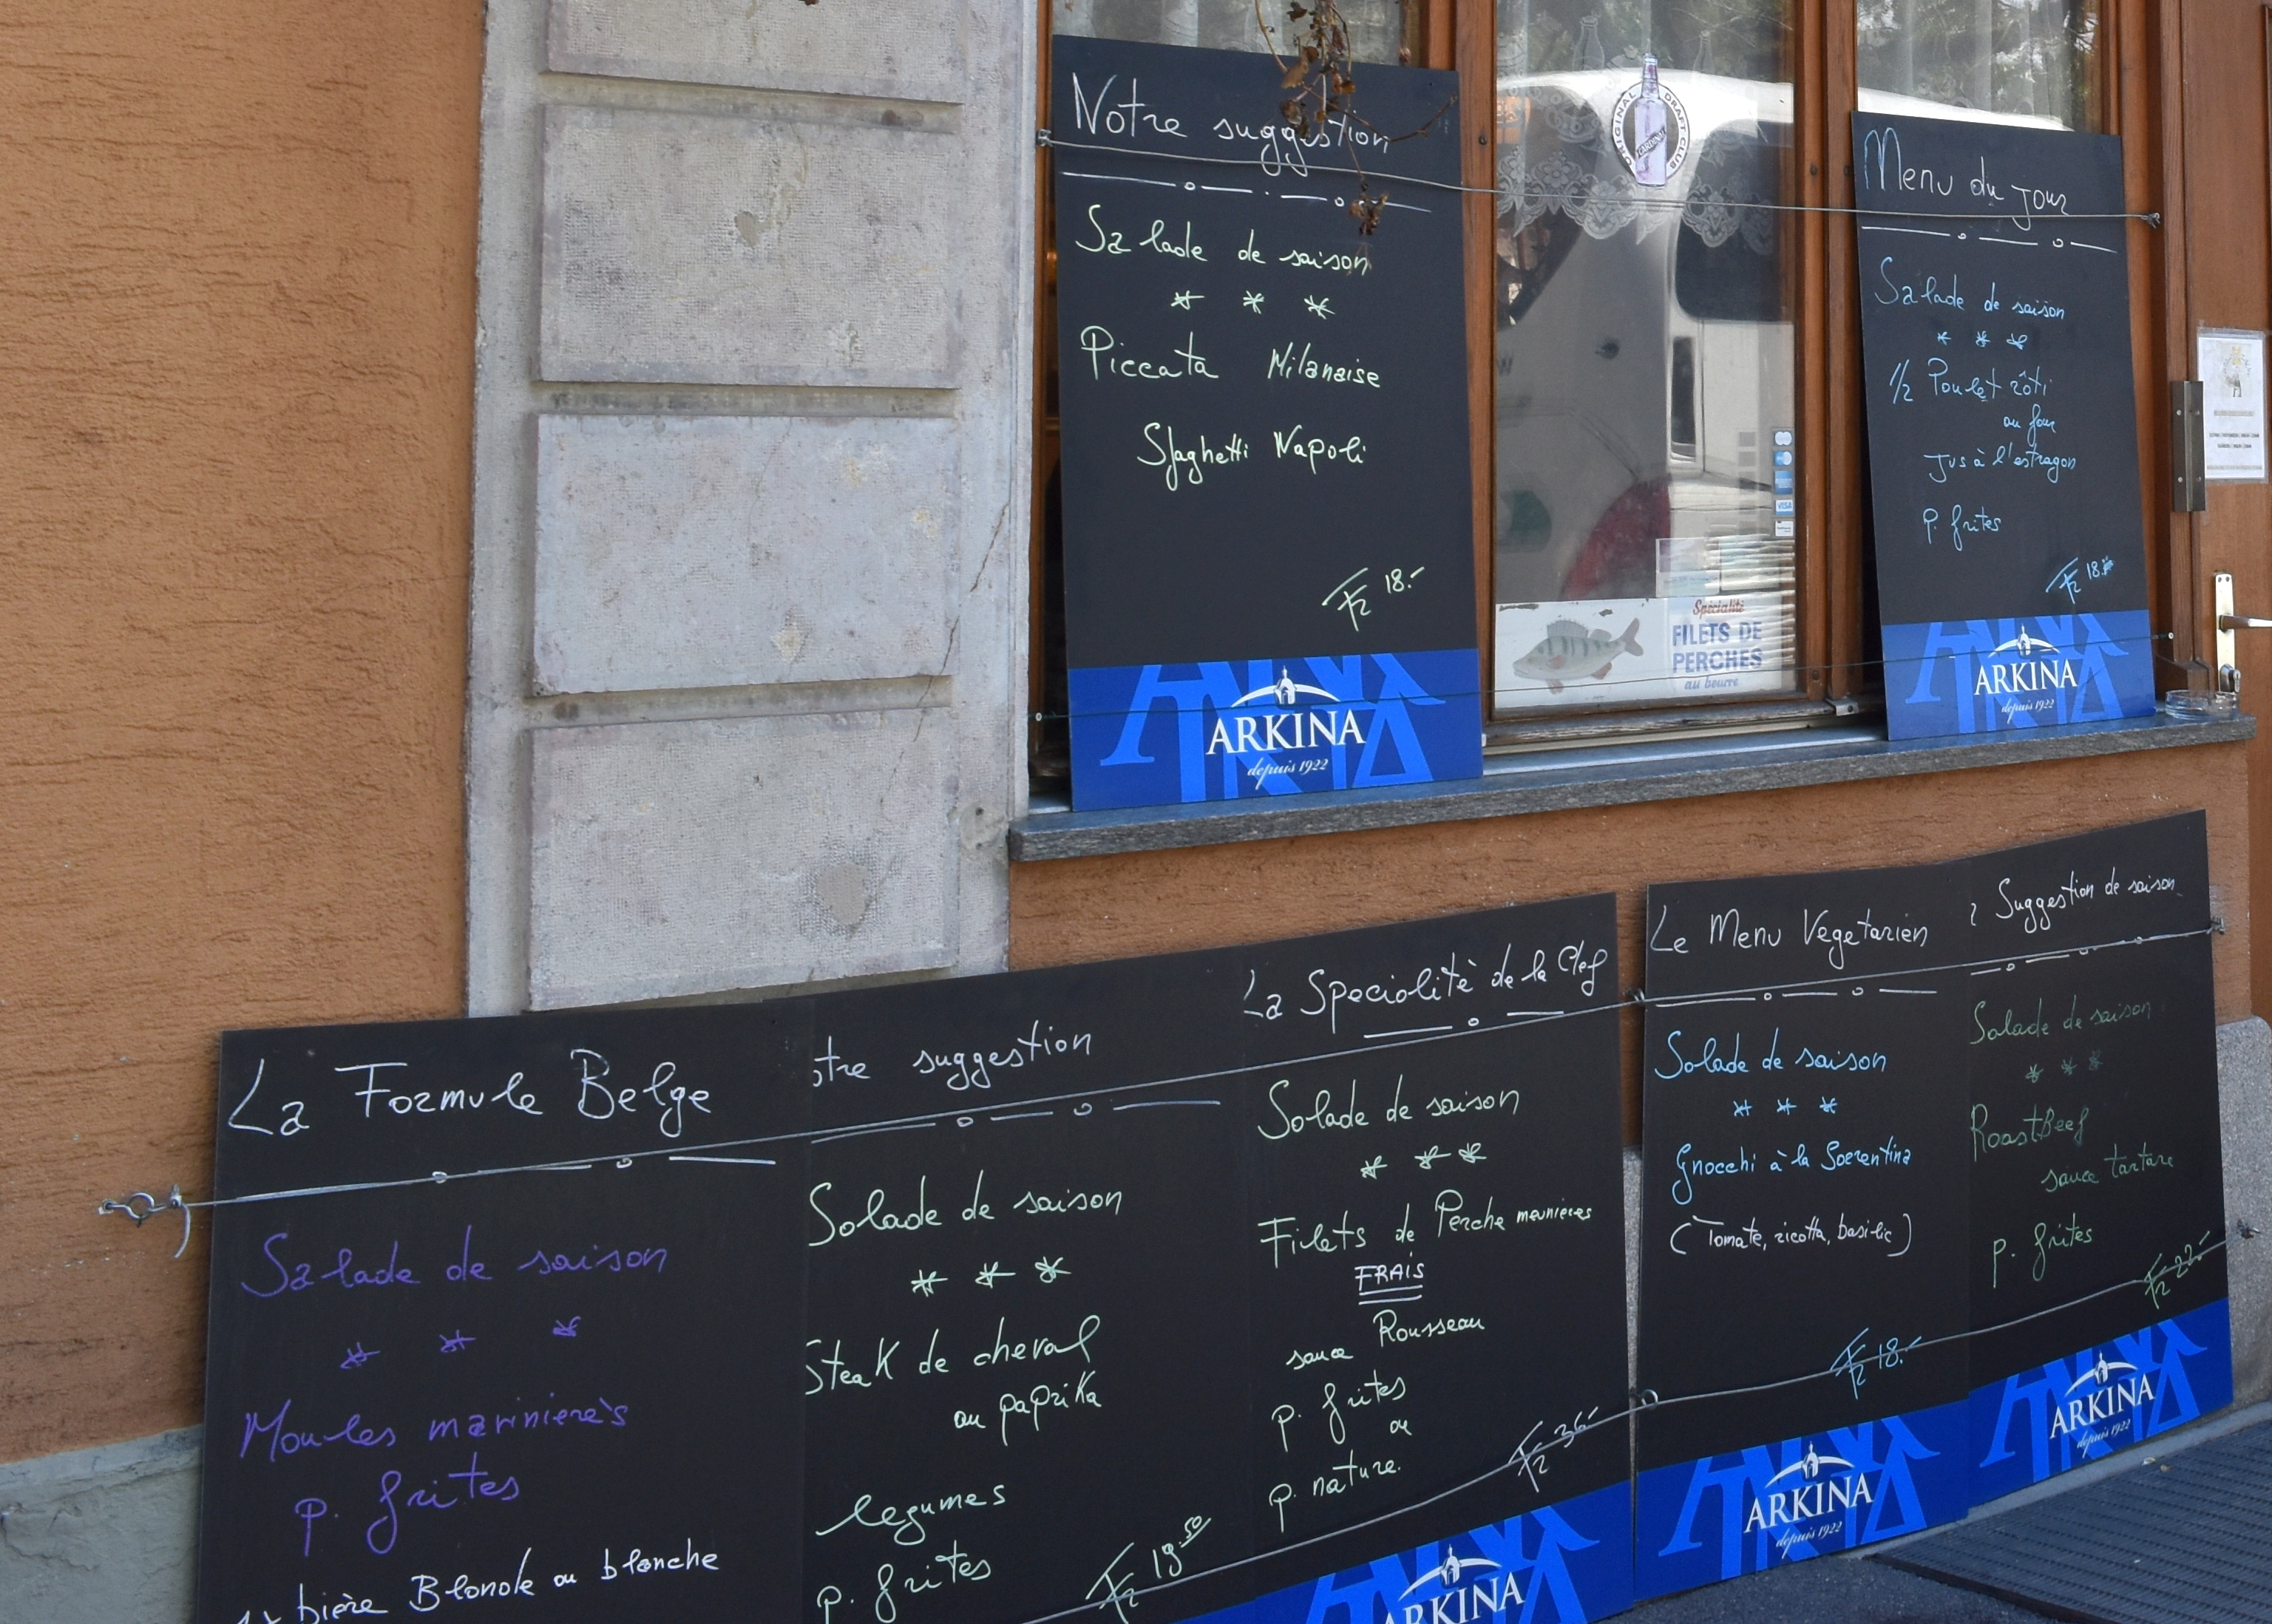 Notre suggestion
Salade de saison
* * *
Piccata Milanaise
Spaghetti Napoli
Fr 18.-
ARKINA
depuis 1922
ORIGINAL DRAFT CLUB
CARDINAL
VISA
Spécialité
FILETS DE
PERCHES
au beurre
Menu du jour
Salade de saison
* * *
1/2 Poulet rôti
au four
Jus à l'estragon
P. frites
Fr 18.-
ARKINA
depuis 1922
La Formule Belge
Salade de saison
* * *
Moules marinière's
P. frites
bière Blonde ou blanche
otre suggestion
Salade de saison
* * *
Steak de cheval
au paprika
legumes
P. frites
Fr 19.50
La Specialitè de la Clef
Salade de saison
* * *
Filets de Perche meunieres
FRAIS
sauce Rousseau
P. frites
ou
P. nature.
Fr 36.-
ARKINA
Le Menu Vegetarien
Salade de saison
* * *
Gnocchi à la Soerentina
(Tomate, ricotta, basilic)
Fr 18.-
ARKINA
depuis 1922
Suggestion de saison
Salade de saison
* * *
RoastBeef
sauce tartare
P. frites
Fr 22.-
ARKINA
depuis 1922